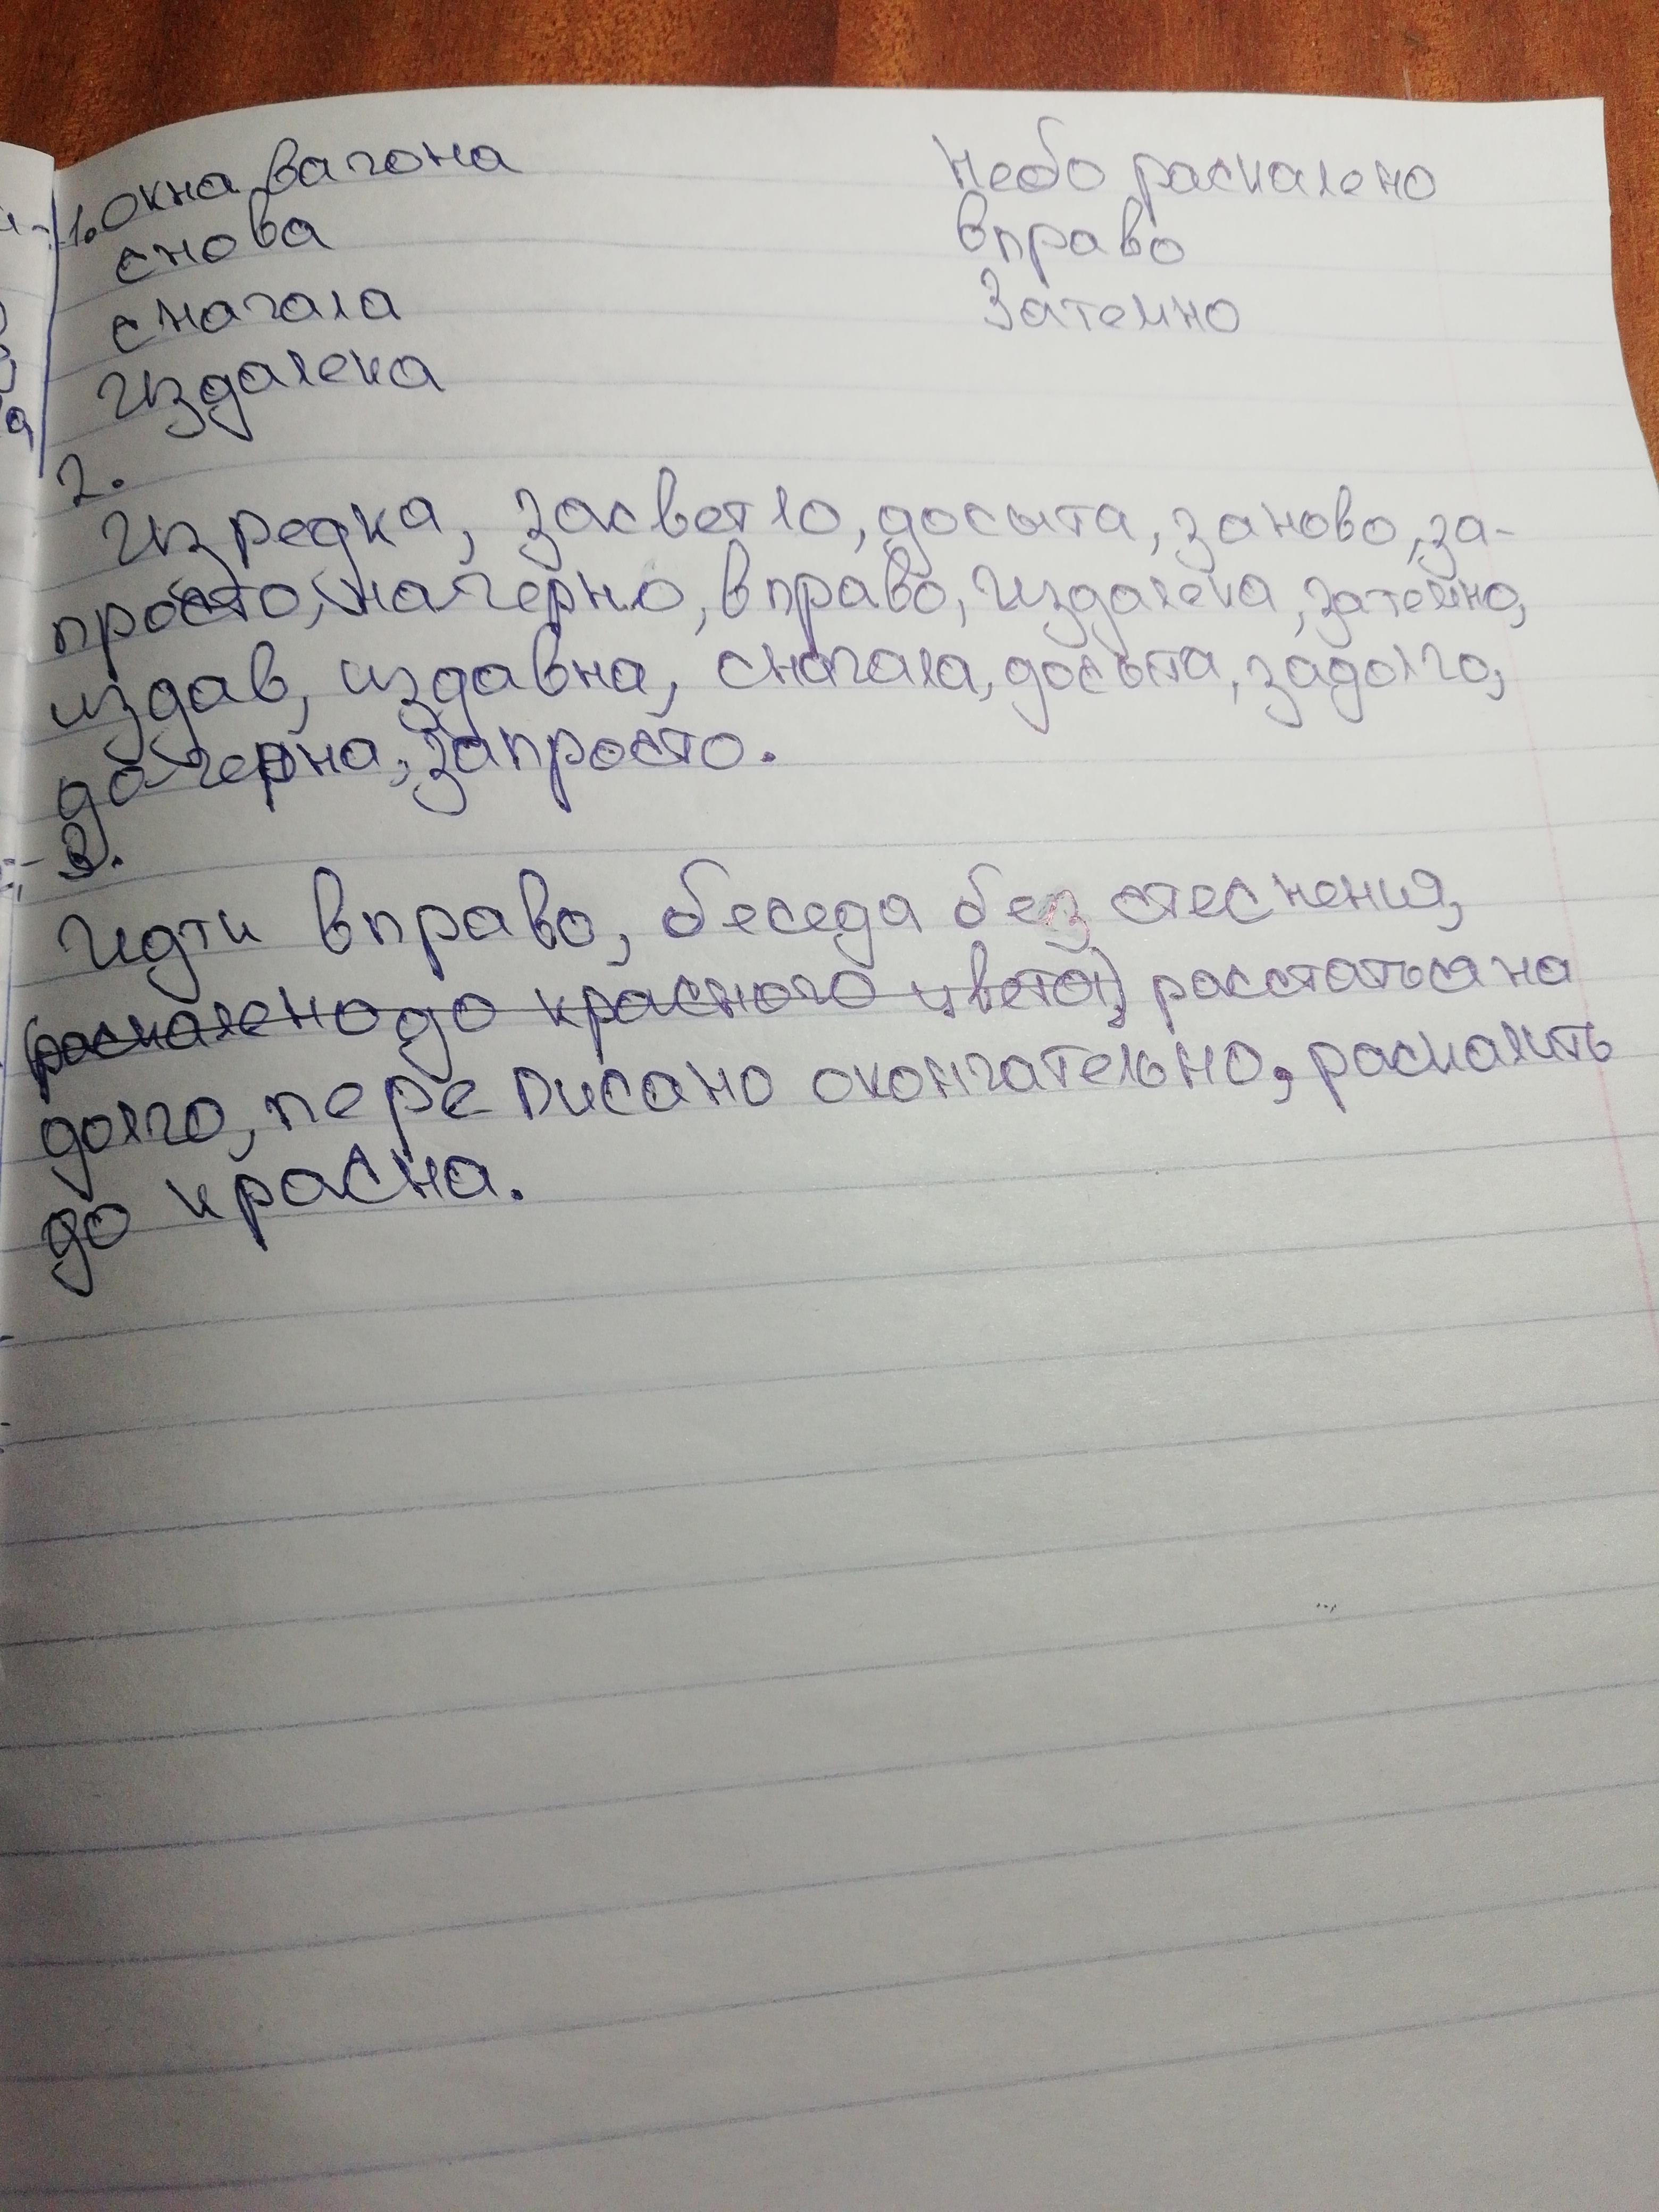 1. Окна вагона
снова
сначала
Издалека
Небо раскалено
Вправо
Затемно
2.
Изредка, засветло, досыта, заново, за-
просто, начерно, вправо, Издалека, затемно,
издав, издавна, сначала, досыта, задолго,
до черна, запросто.
3.
Идти вправо, беседа без стеснения,
(раскалено до красного цвета), расстаться на
долго, пере писано окончательно, раскалить
до красна.